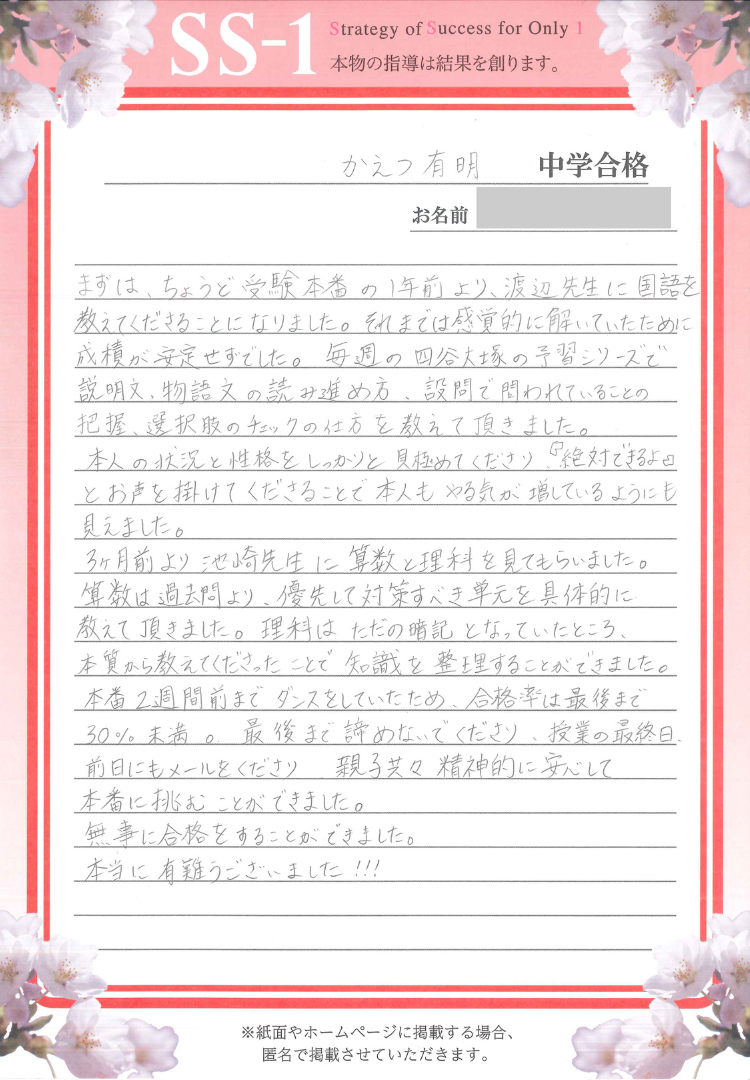 SS-1
Strategy of Success for Only 1
本物の指導は結果を創ります。
かえつ有明 中学合格
お名前
まずは、ちょうど受験本番の1年前より、渡辺先生に国語を
教えてくださることになりました。それまでは感覚的に解いていたために
成積が安定せずでした。毎週の四谷大塚の予習シリーズで
説明文、物語文の読み進め方、設問で問われていることの
把握、選択肢のチェックの仕方を教えて頂きました。
本人の状況と性格をしっかりと見極めてくださり、『絶対できるよ』
とお声を掛けてくださることで本人もやる気が増しているようにも
見えました。
3ヶ月前より池崎先生に算数と理科を見てもらいました。
算数は過去問より、優先して対策すべき単元を具体的に
教えて頂きました。理科はただの暗記となっていたところ、
本質から教えてくださったことで知識を整理することができました。
本番2週間前までダンスをしていたため、合格率は最後まで
30%未満。最後まで諦めないでくださり、授業の最終日、
前日にもメールをくださり 親子共々精神的に安心して
本番に挑むことができました。
無事に合格をすることができました。
本当に有難うございました!!!
※紙面やホームページに掲載する場合、
匿名で掲載させていただきます。